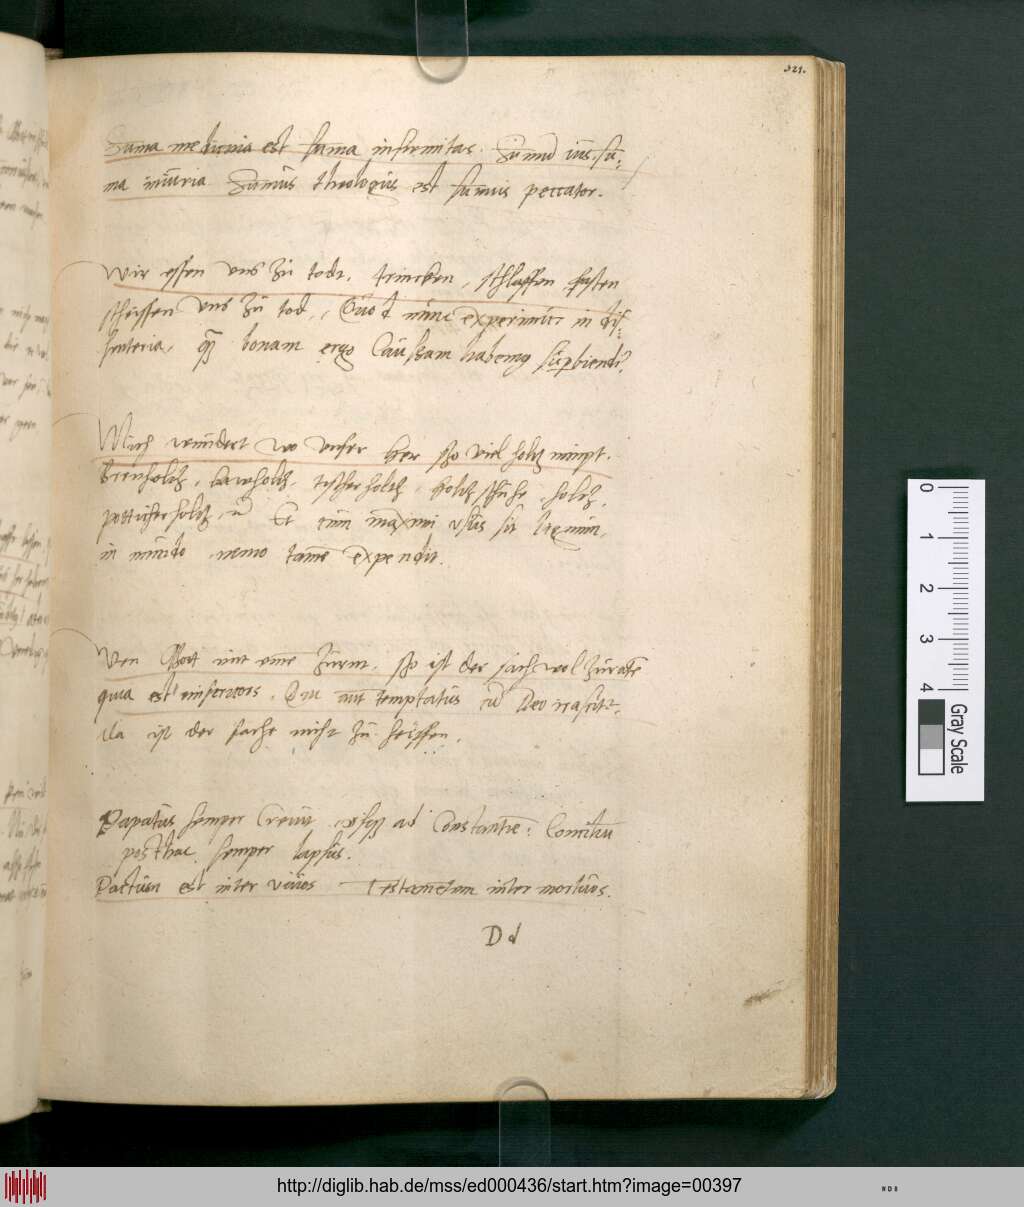 321.
Sum̃a medicina est sum̃a infirmitas. Sum̃ũ ius. sum̃:
ma iniuria Sum̃us theologus est sum̃us peccator.
Wir essen uns zu todt, trincken, schlaffen fasten
scheissen uns zu tod, Quod nunc experimur in dis:
senteria, bonam ergo Caussam habemus superbiendi.
Mich wundert wo unser her sso viel holtz nimpt.
Brenholtz, bawholtz, tischer holtz, holtzschuhe, holtz,
potticher holtz, Et cum maximi usus sit lignum,
in mundo nemo tamẽ expendit.
Wen Gott mit eim̃ zurnt, sso ist der sach wol zuratẽ
quia est misericors. Qñ aut temptatus cũ Deo irascitur,
da ist der sache nicht zu helffen.
Papatus semper crevit usque ad Constantiẽ: Conciliũ
posthac semper lapsus.
Pactum est inter vivos Testamẽtum inter mortuos.
Dd
0 1 2 3 4
Gray Scale
http://diglib.hab.de/mss/ed000436/start.htm?image=00397